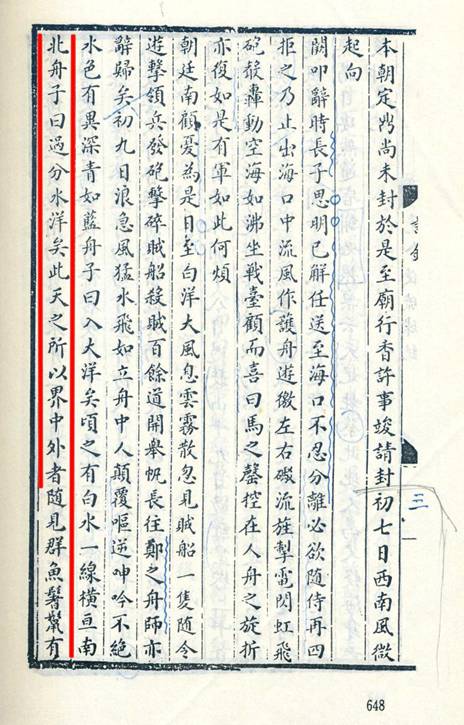 本朝定鼎尚未封於是至廟行香許事竣請封初七日西南風微
起向
闕叩辭時長子思明已解任送至海口不忍分離必欲隨侍再四
拒之乃止出海口中流風作護舟遊徼左右礮流旌掣電閃虹飛
砲轟動空海如沸坐戰臺顧而喜曰馬之罄控在人舟之旋折
亦復如是有軍如此何煩
朝廷南顧憂為是日至白洋大風息雲霧散忽見賊船一隻隨令
遊擊領兵發砲擊碎賊船殺賊百餘道開舉帆長往鄭之舟師亦
辭歸矣初九日浪急風猛水飛如立舟中人顛覆嘔逆呻吟不絕
水色有異深青如藍舟子曰入大洋矣頃之有白水一線橫亘南
北舟子曰過分水洋矣此天之所以界中外者隨見群魚鬐鬣有
三
648